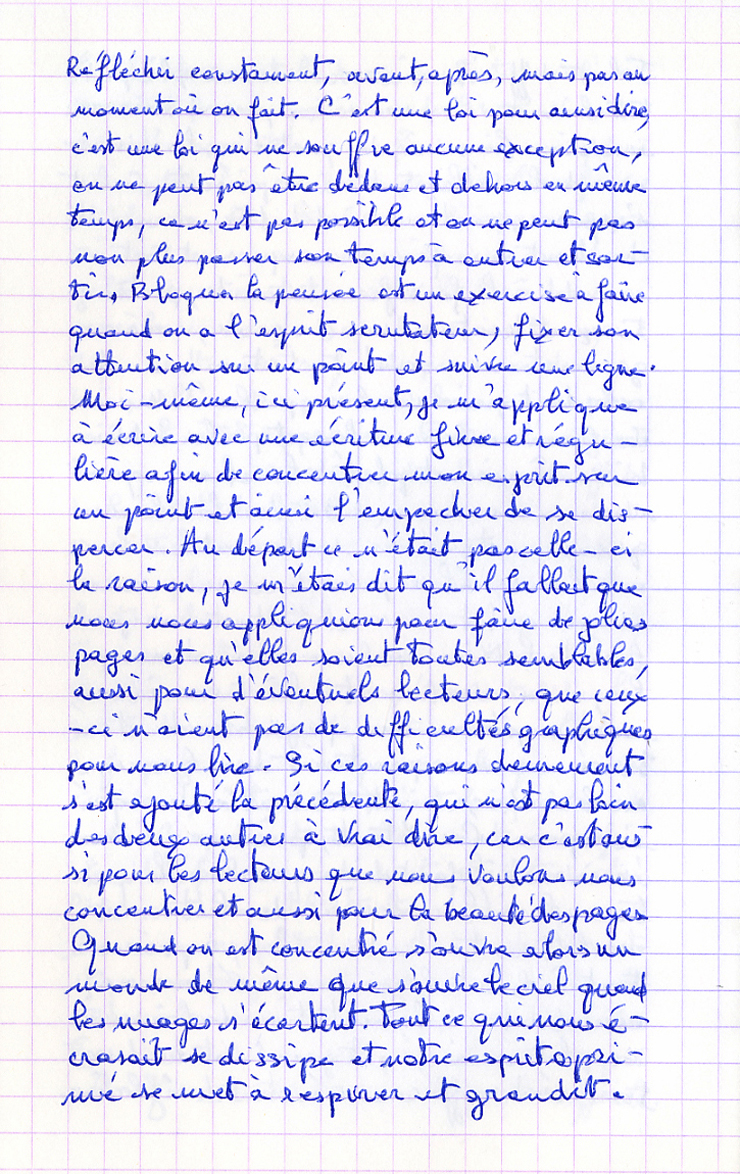 Réfléchir constament, avant, après, mais pas au
moment où on fait. C'est une loi pour ainsi dire,
c'est une loi qui ne souffre aucune exception,
on ne peut pas être dedans et dehors en même
temps, ce n'est pas possible et on ne peut pas
non plus passer son temps à entrer et sor-
tir. Bloquer la pensée est un exercise à faire
quand on a l'esprit scrutateur, fixer son
attention sur un point et suivre une ligne.
Moi-même, ici présent, je m'applique
à écrire avec une écriture fine et régu-
lière afin de concentrer mon esprit sur
un point et ainsi l'empêcher de se dis-
percer. Au départ ce n'était pas celle-ci
la raison, je m'étais dit qu'il fallait que
nous nous appliquions pour faire de jolies
pages et qu'elles soient toutes semblables,
aussi pour d'éventuels lecteurs, que ceux
-ci n'aient pas de difficultés graphiques
pour nous lire. Si ces raisons demeurent
s'est ajouté la précédente, qui n'est pas loin
des deux autres à vrai dire, car c'est aus
si pour les lecteurs que nous voulons nous
concentrer et aussi pour la beauté des pages
Quand on est concentré s'ouvre alors un
monde de même que s'ouvre le ciel quand
les nuages s'écartent. Tout ce qui nous é-
crasait se dissipe et notre esprit opri-
mé se met à respirer et grandit.